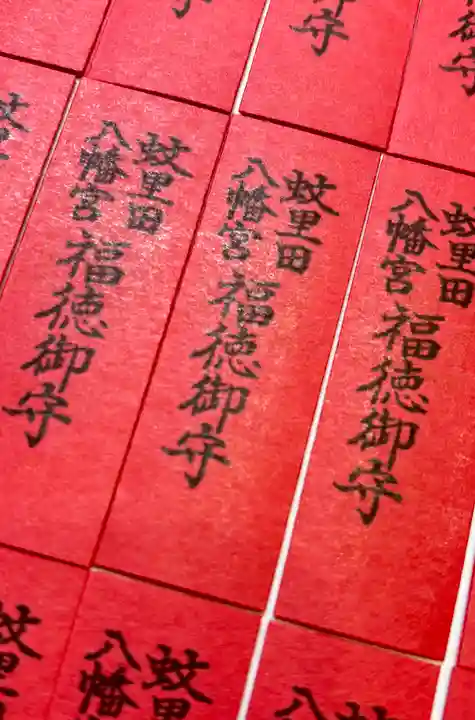 御守
御守
蚊里田
八幡宮
福徳御守
蚊里田
八幡宮
福徳御守
蚊里田
八幡宮
福徳御守
蚊里
蚊
八
蚊里
八幡
蚊里